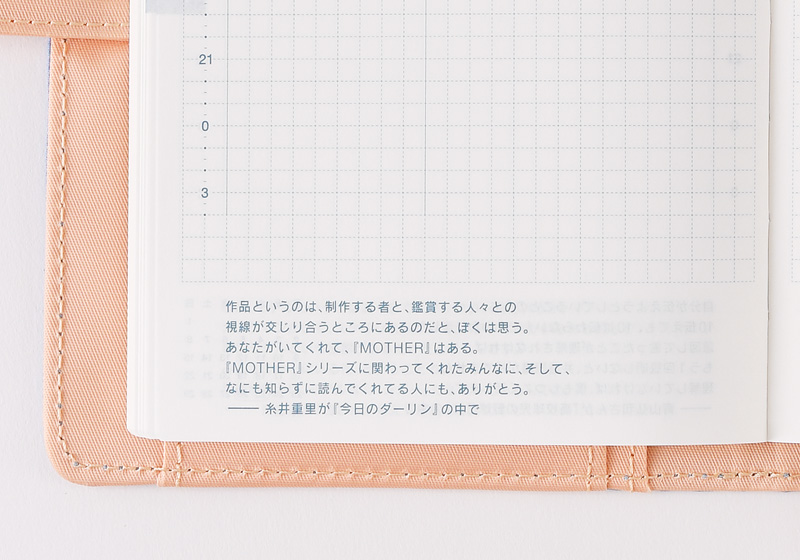 21
0
3
作品というのは、制作する者と、鑑賞する人々との
視線が交じり合うところにあるのだと、ぼくは思う。
あなたがいてくれて、『MOTHER』はある。
『MOTHER』シリーズに関わってくれたみんなに、そして、
なにも知らずに読んでくれてる人にも、ありがとう。
—— 糸井重里が『今日のダーリン』の中で